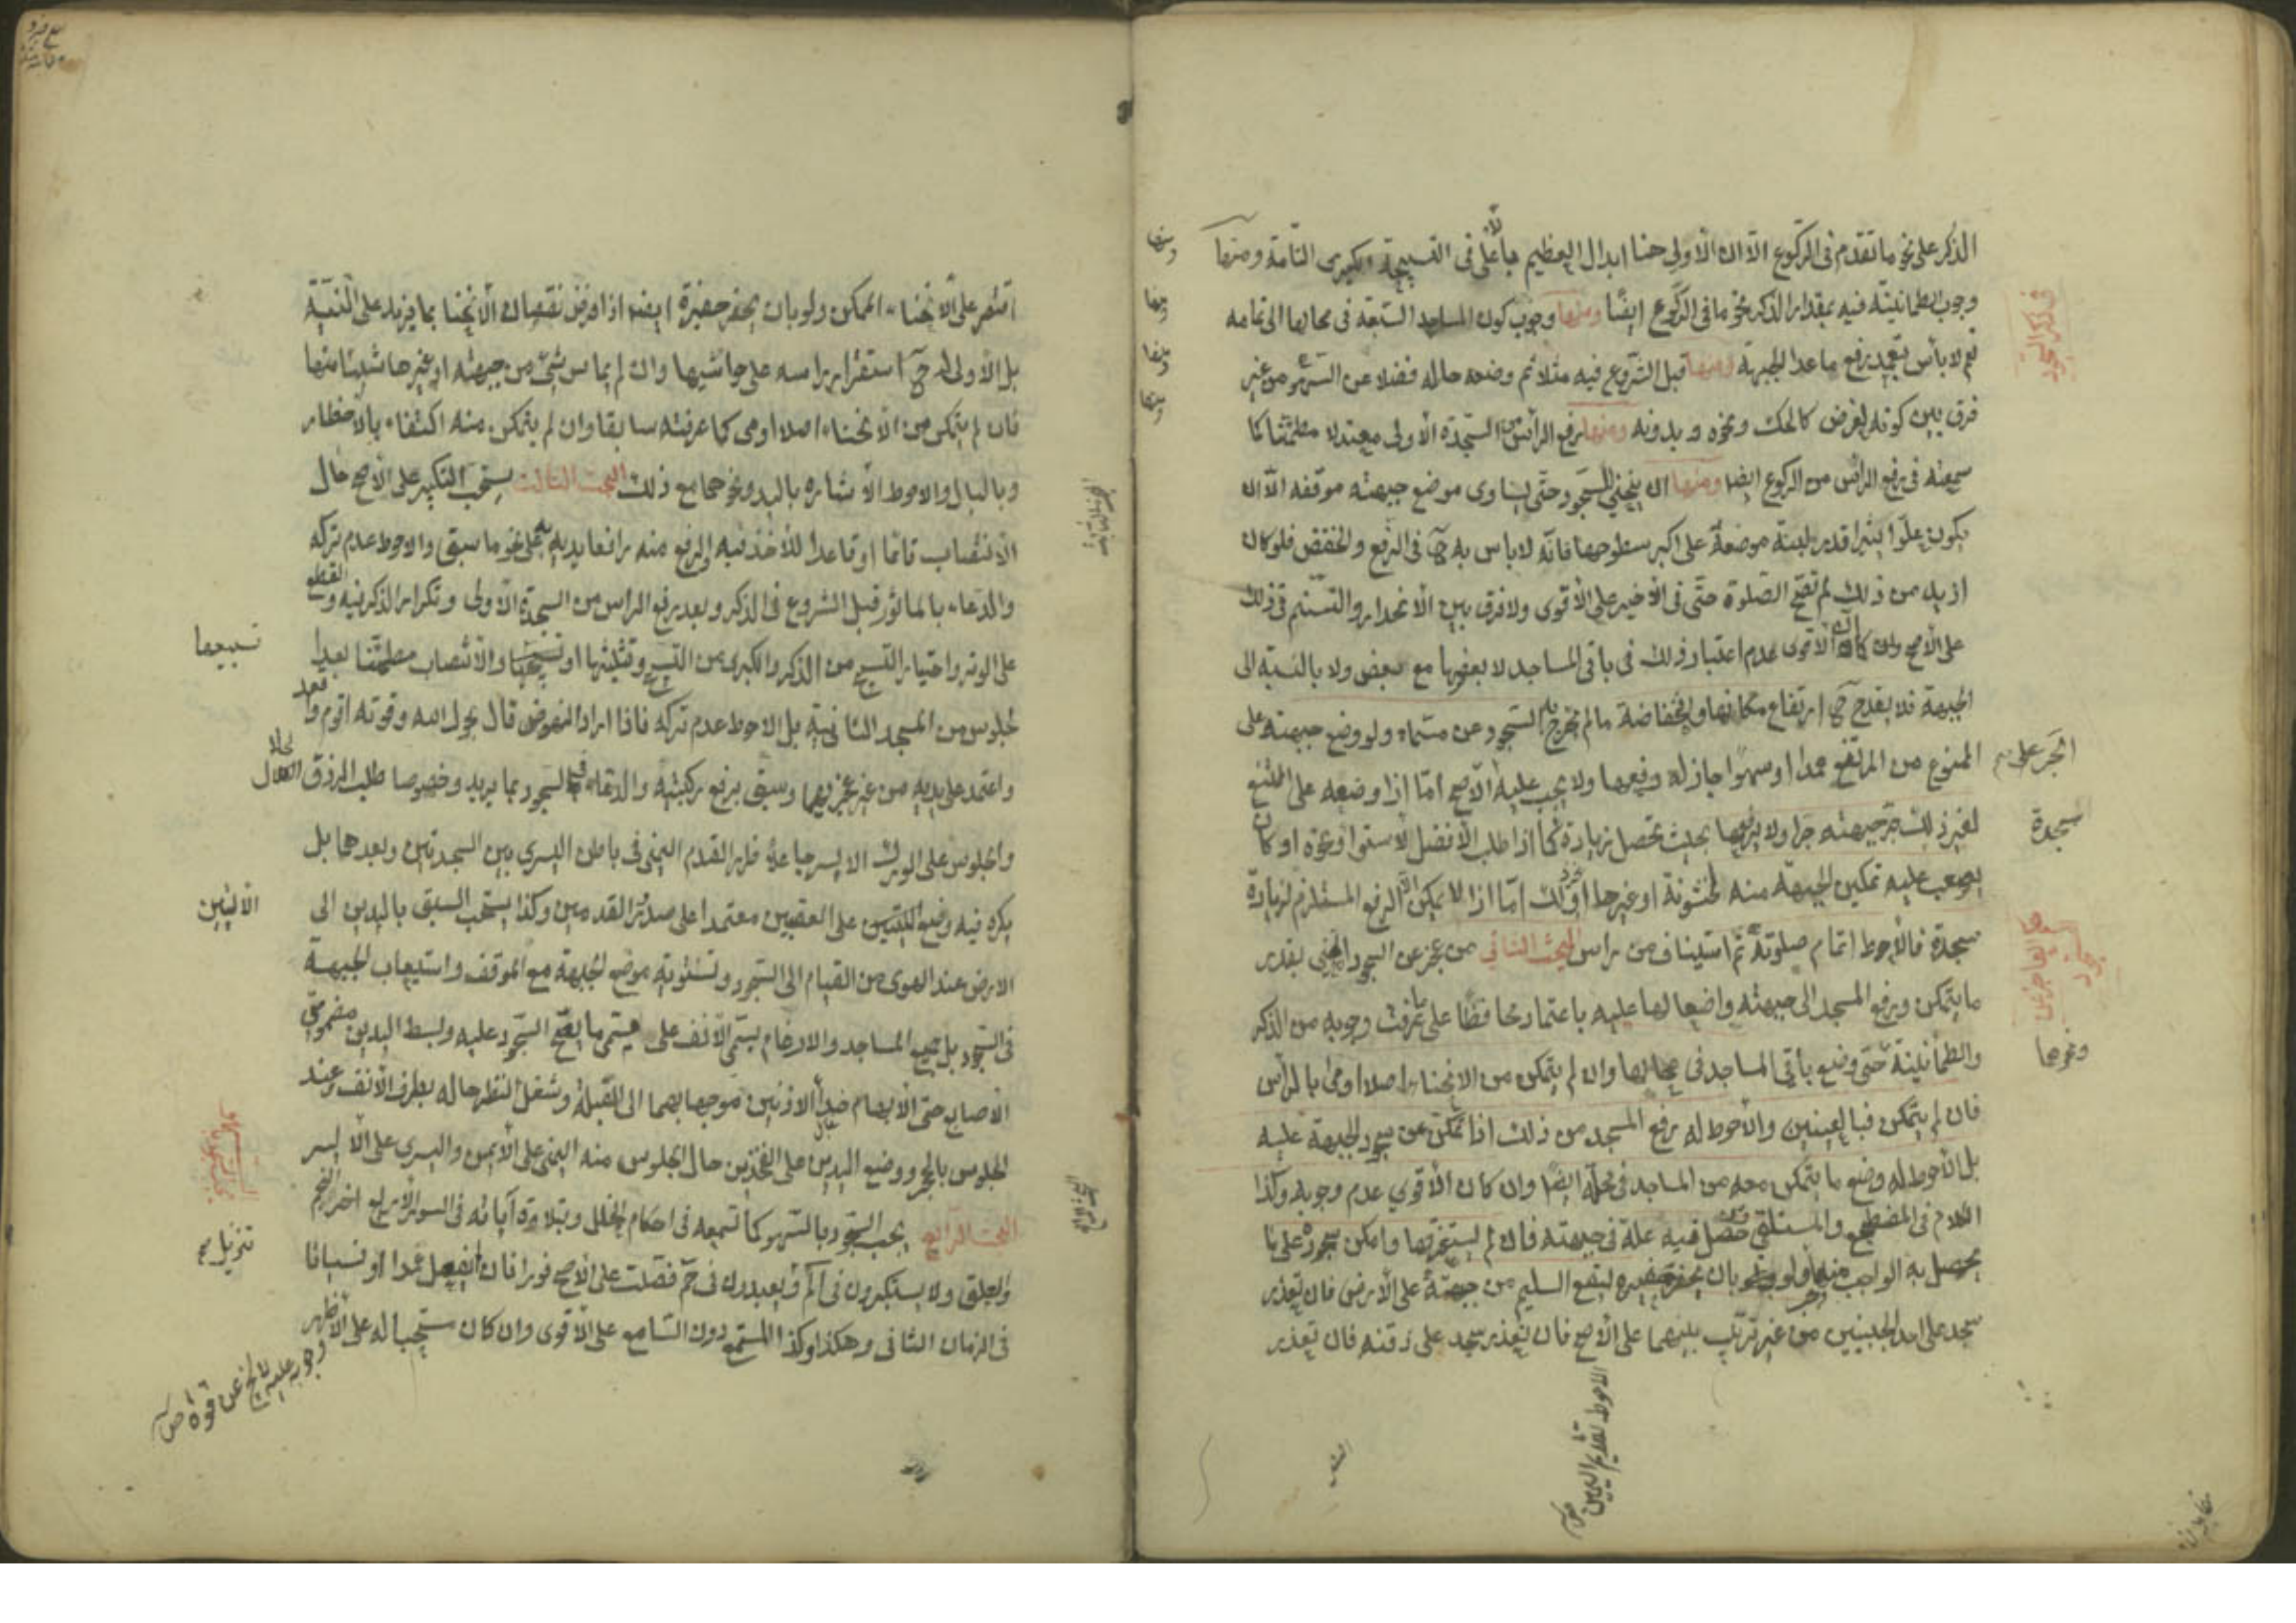 الذكر على نحو ما تقدم في الركوع الا ان الاولى هنا ابدال العظيم بالأعلى في التسبيحة الكبرى التامة ومنها
وجوب الطمانينة فيه بمقدار الذكر نحو ما في الركوع ايضا ومنها وجوب كون المساجد السبعة في محالها الى تمامه
نعم لا بأس بتعمد رفع ما عدا الجبهة ومنها قبل الشروع فيه مثلا ثم وضعه حاله فضلا عن السهو من غير
فرق بين كونه لغرض كالحك ونحوه وبدونه ومنها رفع الرأس من السجدة الاولى معتدلا مطمئنا كما
سمعته في رفع الرأس من الركوع ايضا ومنها ان ينحني للسجود حتى يساوى موضع جبهته موقفه الا ان
يكون علوا يسيرا قدر لبنة موضوعة على اكبر سطوحها فانه لا باس به ح في الرفع والخفض فلو كان
ازيد من ذلك لم تصح الصلوة حتى في الاخير على الأقوى ولا فرق بين الانحدار والتسنيم في ذلك
على الاصح وان كان الاقوى عدم اعتبار ذلك في باقي المساجد لا بعضها مع بعض ولا بالنسبة الى
الجبهة فلا يقدح ح ارتفاع مكانها وانخفاضه ما لم يخرج به السجود عن مسماه ولو وضع جبهته على
الممنوع من المرتفع عمدا او سهوا جاز له رفعها ولا يجب عليه الجر على الاصح اما اذا وضعه على الممتنع
لغير ذلك جر جبهته جرا ولا يرفعها بحيث تحصل زيادة سجدة كما اذا طلب الافضل لاستوا او نحوه او كان
يصعب عليه تمكين الجبهة منه لخشونة او غيرها او نحو ذلك اما اذا لا يمكن الا الرفع المستلزم لزيادة
سجدة فالأحوط اتمام صلوته ثم استيناف من راس البحث الثاني من عجز عن السجود انحنى بقدر
ما يتمكن ورفع المسجد الى جبهته واضعا لها عليه باعتماد محافظا على ما عرفت وجوبه من الذكر
والطمأنينة ونحوهما حتى وضع باقي المساجد في محالها وان لم يتمكن من الانحناء اصلا اومى بالرأس
فان لم يتمكن فبالعينين والأحوط له رفع المسجد من ذلك اذا تمكن من سجود الجبهة عليه
بل الأحوط له وضع ما يتمكن معه من المساجد في محله ايضا وان كان الأقوى عدم وجوبه وكذا
الكلام في المضطجع والمستلقي ومن حصل فيه علة في جبهته فان لم يستغرقها وامكن سجوده على ما
يحصل به الواجب منها ولو بان يحفر حفيرة ليقع السليم من جبهته على الأرض فان تعذر
سجد على احد الجبينين من غير ترتيب بينهما على الاصح فان تعذر سجد على ذقنه فان تعذر
الاحوط تقديم اليمين
ومنها
ومنها
ومنها
ومنها
الجر على
سجدة
ونحوهما
اقتصر على الانحناء الممكن ولو بان يحفر حفيرة ايضا اذا فرض نقصان الانحنا بما يزيد على اللبنة
بل الأولى له ح استقرار راسه على حاشيها وان لم يماس شئ من جبهته او غيرها شيئا منها
فان لم يتمكن من الانحناء اصلا اومى كما عرفته سابقا وان لم يتمكن منه اكتفاء بالاخطار
وبالبال والاحوط الاشاره باليد ونحوها مع ذلك البحث الثالث يستحب التكبير على الاصح حال
الانتصاب قائما او قاعدا للأخذ فيه والرفع منه رافعا يديه به على نحو ما سبق والاحوط عدم تركه
والدعاء بالماثور قبل الشروع في الذكر وبعد رفع الراس من السجدة الاولى وتكرار الذكر فيه والقطع
على الوتر واختيار التسبيح من الذكر والكبرى من التسبيح وتثليثها او تخميسها والانتصاب مطمئنا بعد
الجلوس من السجدة الثانية بل الاحوط عدم تركه فاذا اراد النهوض قال بحول الله وقوته اقوم واقعد
واعتمد على يديه من غير عجز بهما وسبق برفع ركبتيه والدعاء في السجود بما يريد وخصوصا طلب الرزق الحلال
والجلوس على الورك الايسر جاعلا ظهر القدم اليمنى في باطن اليسرى بين السجدتين وبعدهما بل
يكره فيه وضع الاليتين على العقبين معتمدا على صدور القدمين وكذا يستحب السبق باليدين الى
الارض عند الهوى من القيام الى السجود وتسوية موضع الجبهة مع الموقف واستيعاب الجبهة
في السجود بل جميع المساجد والارغام بمسمى الأنف على مسمى ما يصح السجود عليه وبسط اليدين مضمومتي
الاصابع حتى الابهام حذاء الاذنين موجها بهما الى القبلة وشغل النظر حاله بطرف الأنف وعند
الجلوس بالحجر ووضع اليدين على الفخذين حال الجلوس منه اليمنى على الأيمن واليسرى على الايسر
البحث الرابع يجب السجود بالسهو كما تسمعه في احكام الخلل وبتلاوة آياته في السور الأربع اخر النجم
والعلق ولا يستكبرون في الم تنزيل ويعبدون في حم فصلت على الاصح فورا فان لم يفعل عمدا او نسيانا
في الزمان الثاني وهكذا وكذا المستمع دون السامع على الأقوى وان كان مستحبا له على الأظهر
وجوبه عليه لا يخ عن قوة
تسبيعها
الأليتين
تنزيل